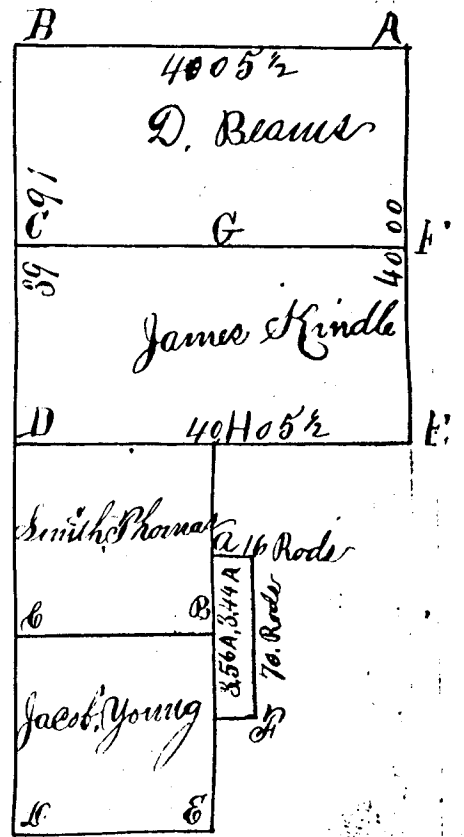 B A
40 05 1/2
D. Beams
91
C G F
39
40 00
James Kindle
D 40 H 05 1/2 E
Smith, Thomas
a 16 Rods
3,56A, 3,44A
70. Rods
C B
Jacob, Young
F
D E